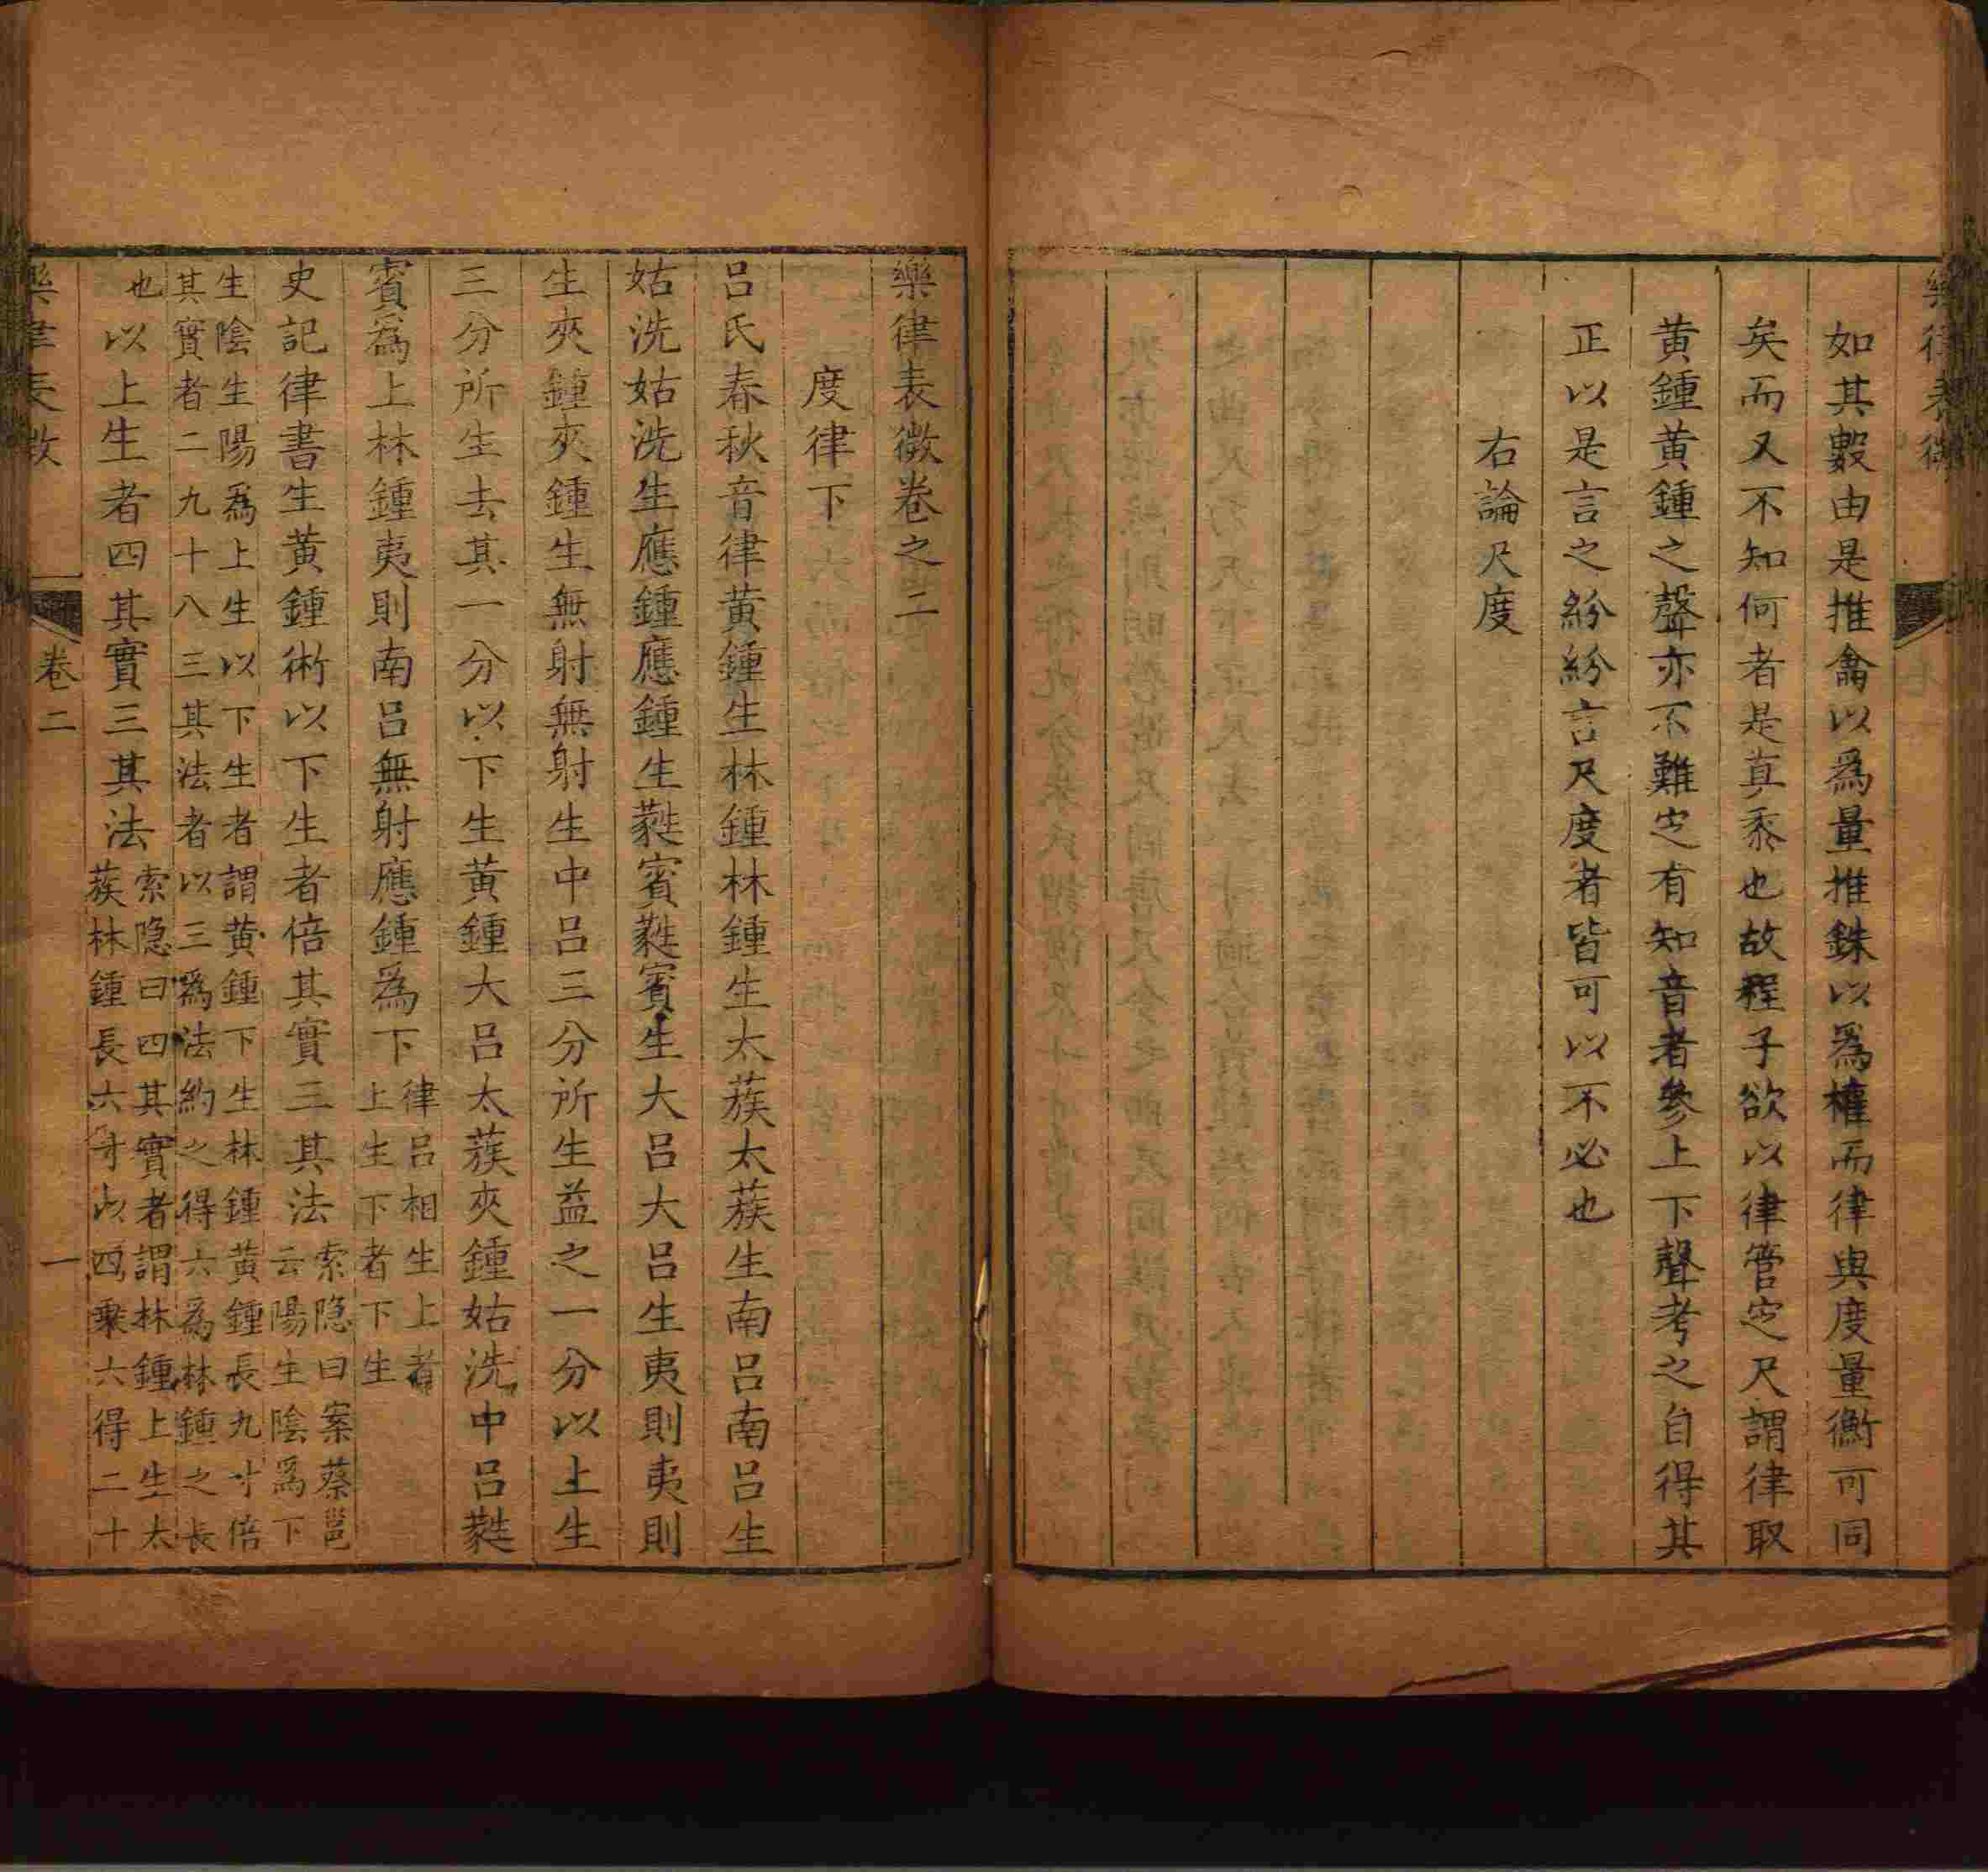 樂律表微
七
如其數由是推龠以為量推銖以為權而律與度量衡可同
矣而又不知何者是真黍也故程子欲以律管定尺謂律取
黄鍾黄鍾之聲亦不難定有知音者參上下聲考之自得其
正以是言之紛紛言尺度者皆可以不必也
右論尺度
樂律表微卷之二
度律下
吕氏春秋音律黄鍾生林鍾林鍾生太蔟太蔟生南吕南吕生
姑洗姑洗生應鍾應鍾生蕤賓蕤賓生大吕大吕生夷則夷則
生夾鍾夾鍾生無射無射生中吕三分所生益之一分以上生
三分所生去其一分以下生黄鍾大吕太蔟夾鍾姑洗中吕蕤
賓為上林鍾夷則南吕無射應鍾為下律吕相生上者上生下者下生
史記律書生黄鍾術以下生者倍其實三其法索隐曰案蔡邕云陽生陰為下
生陰生陽為上生以下生者謂黄鍾下生林鍾黄鍾長九寸倍
其實者二九十八三其法者以三為法約之得六為林鍾之長
也以上生者四其實三其法索隐曰四其實者謂林鍾上生太蔟林鍾長六寸以四乘六得二十
樂律表微
卷二
一